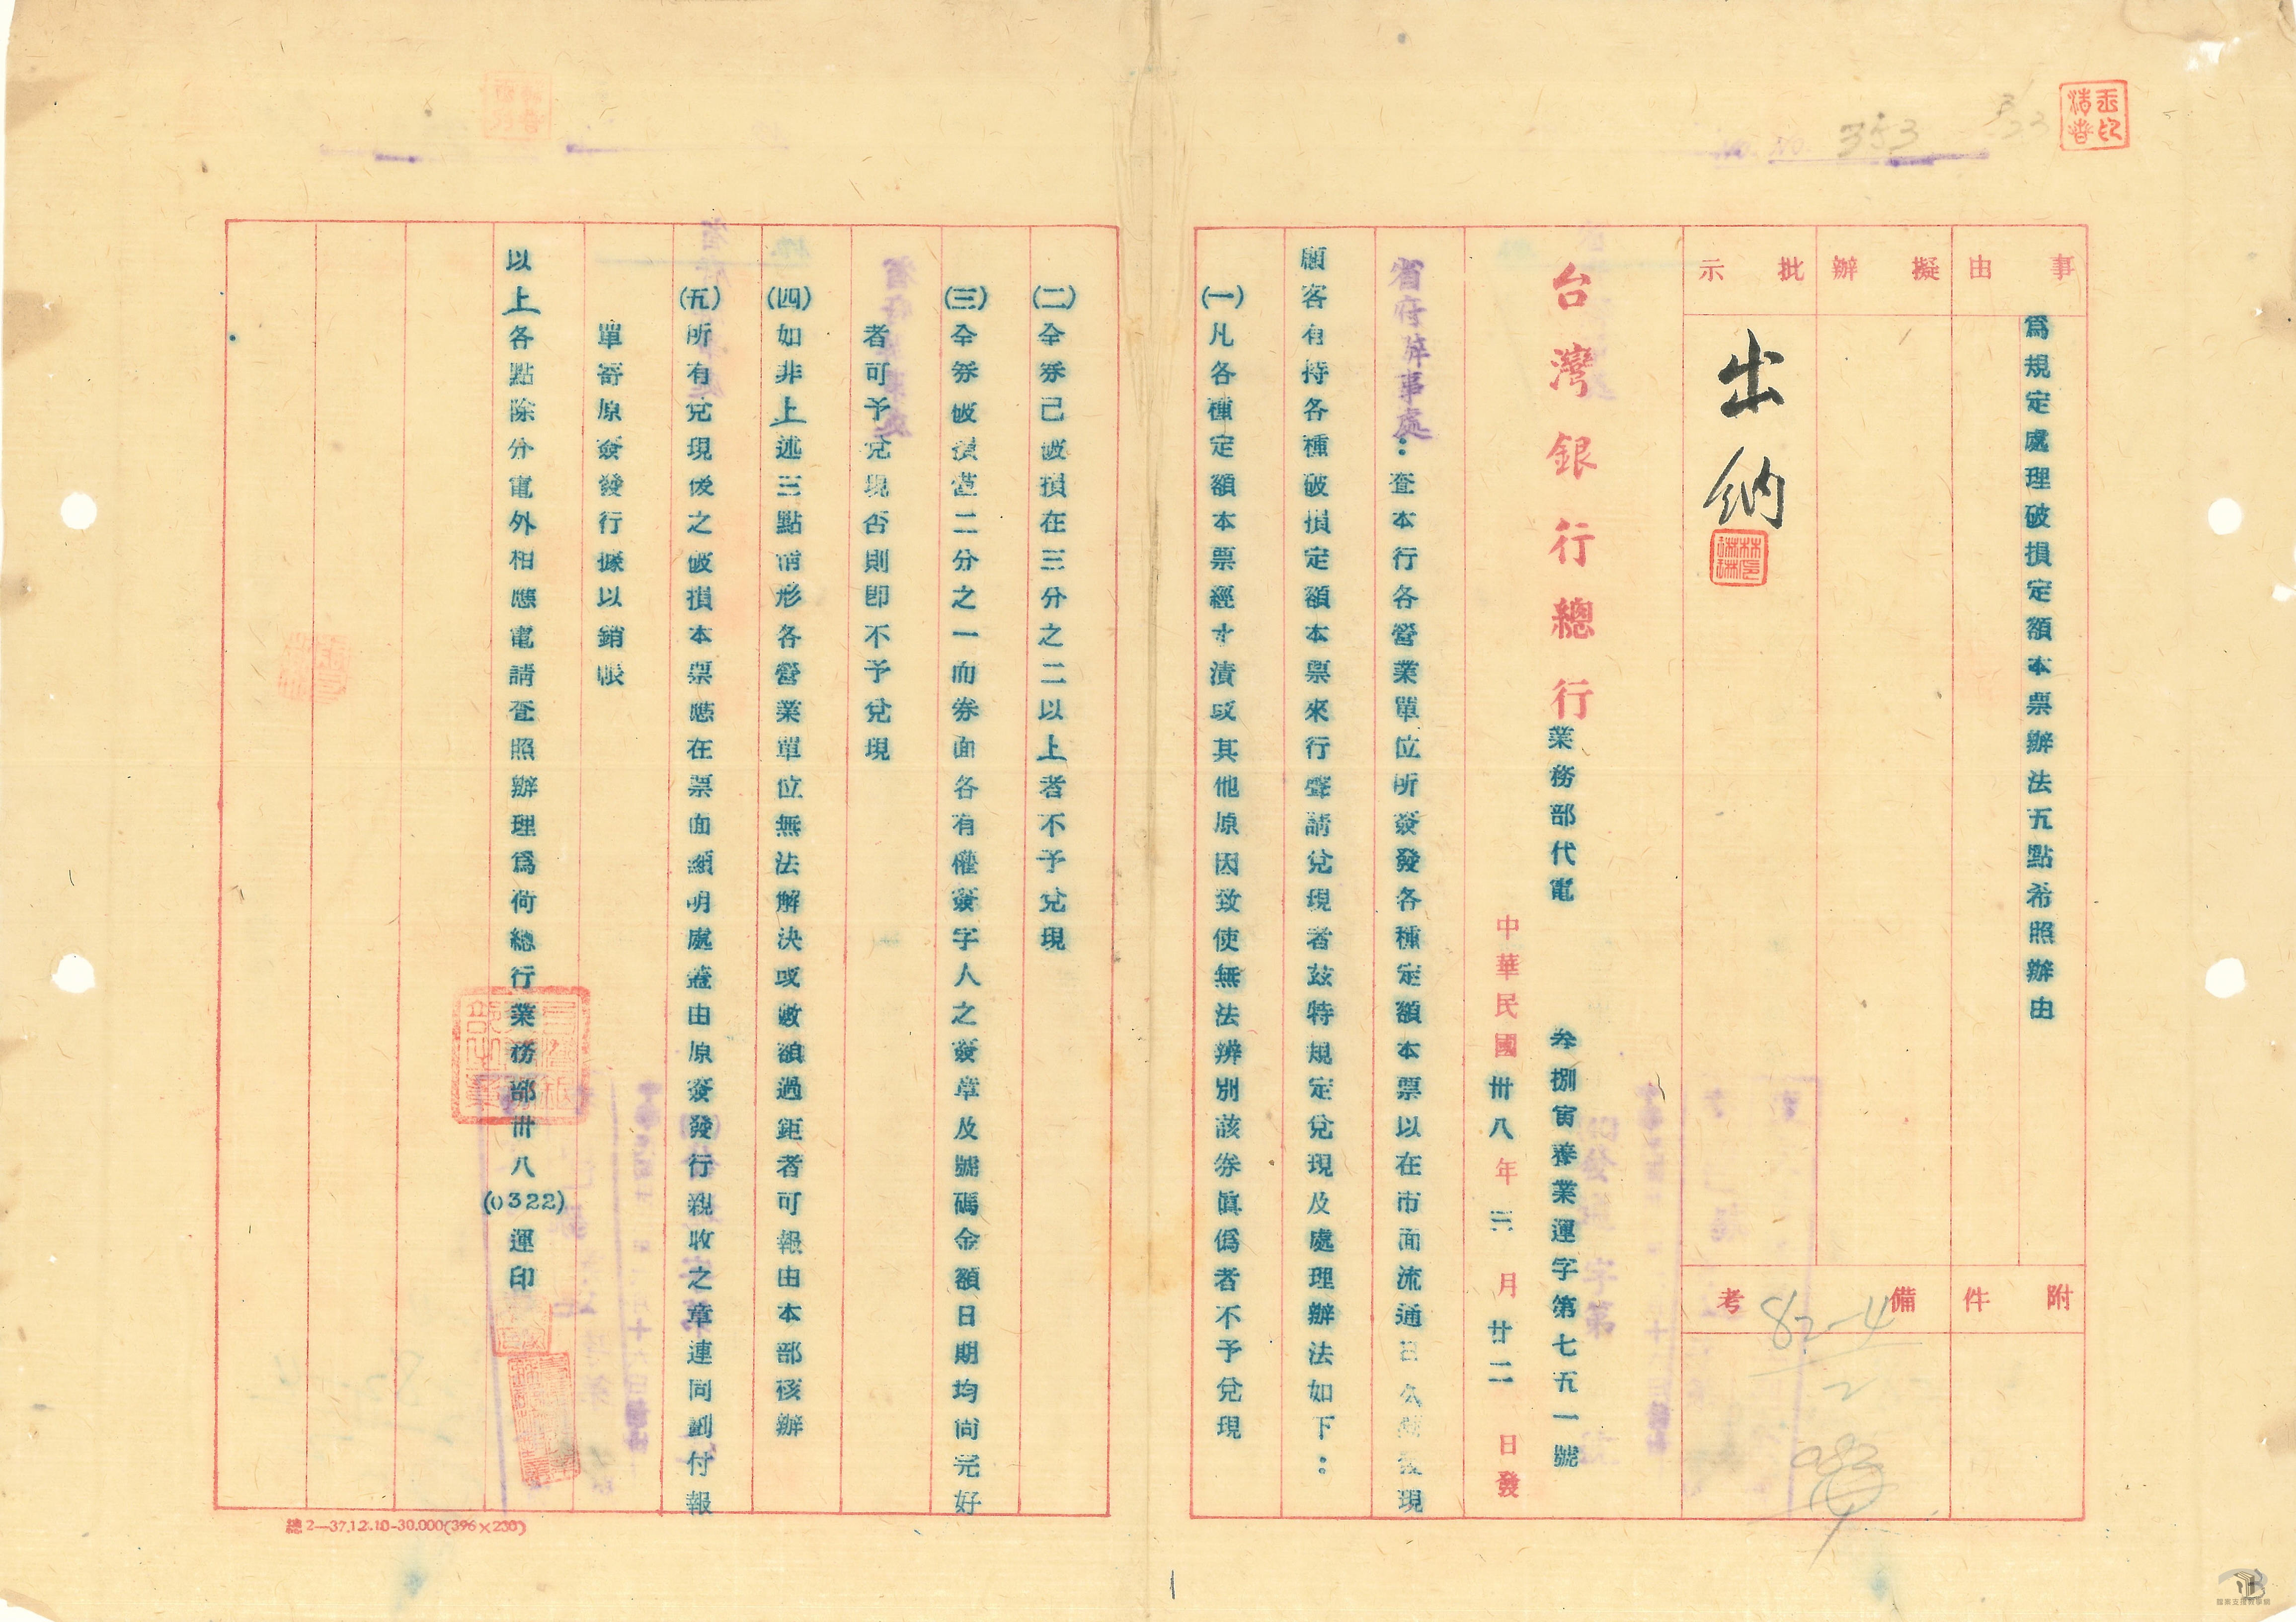 353
事由
為規定處理破損定額本票辦法五點希照辦由
擬辦
批示
出納
附件
備考
82-4
2
台灣銀行總行業務部代電
叁捌寅養業運字第七五一號
中華民國卅八年三月廿二日發
省府辦事處：查本行各營業單位所簽發各種定額本票以在市面流通日久發現
顧客有持各種破損定額本票來行聲請兌現者茲特規定兌現及處理辦法如下：
(一)凡各種定額本票經水漬或其他原因致使無法辨別該券眞僞者不予兌現
(二)全券已破損在三分之二以上者不予兌現
(三)全券破損達二分之一而券面各有權簽字人之簽章及號碼金額日期均尚完好
者可予兌現否則即不予兌現
(四)如非上述三點情形各營業單位無法解決或數額過鉅者可報由本部核辦
(五)所有兌現後之破損本票應在票面顯明處蓋由原簽發行親收之章連同劃付報
單寄原簽發行據以銷帳
以上各點除分電外相應電請查照辦理為荷總行業務部卅八(0322)運印
總2—37.12.10-30.000(396×230)
1